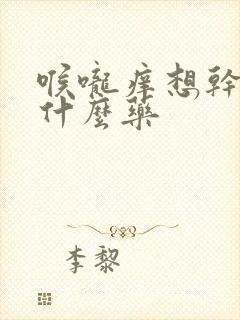 喉嚨痒想幹
什麼藥
李黎